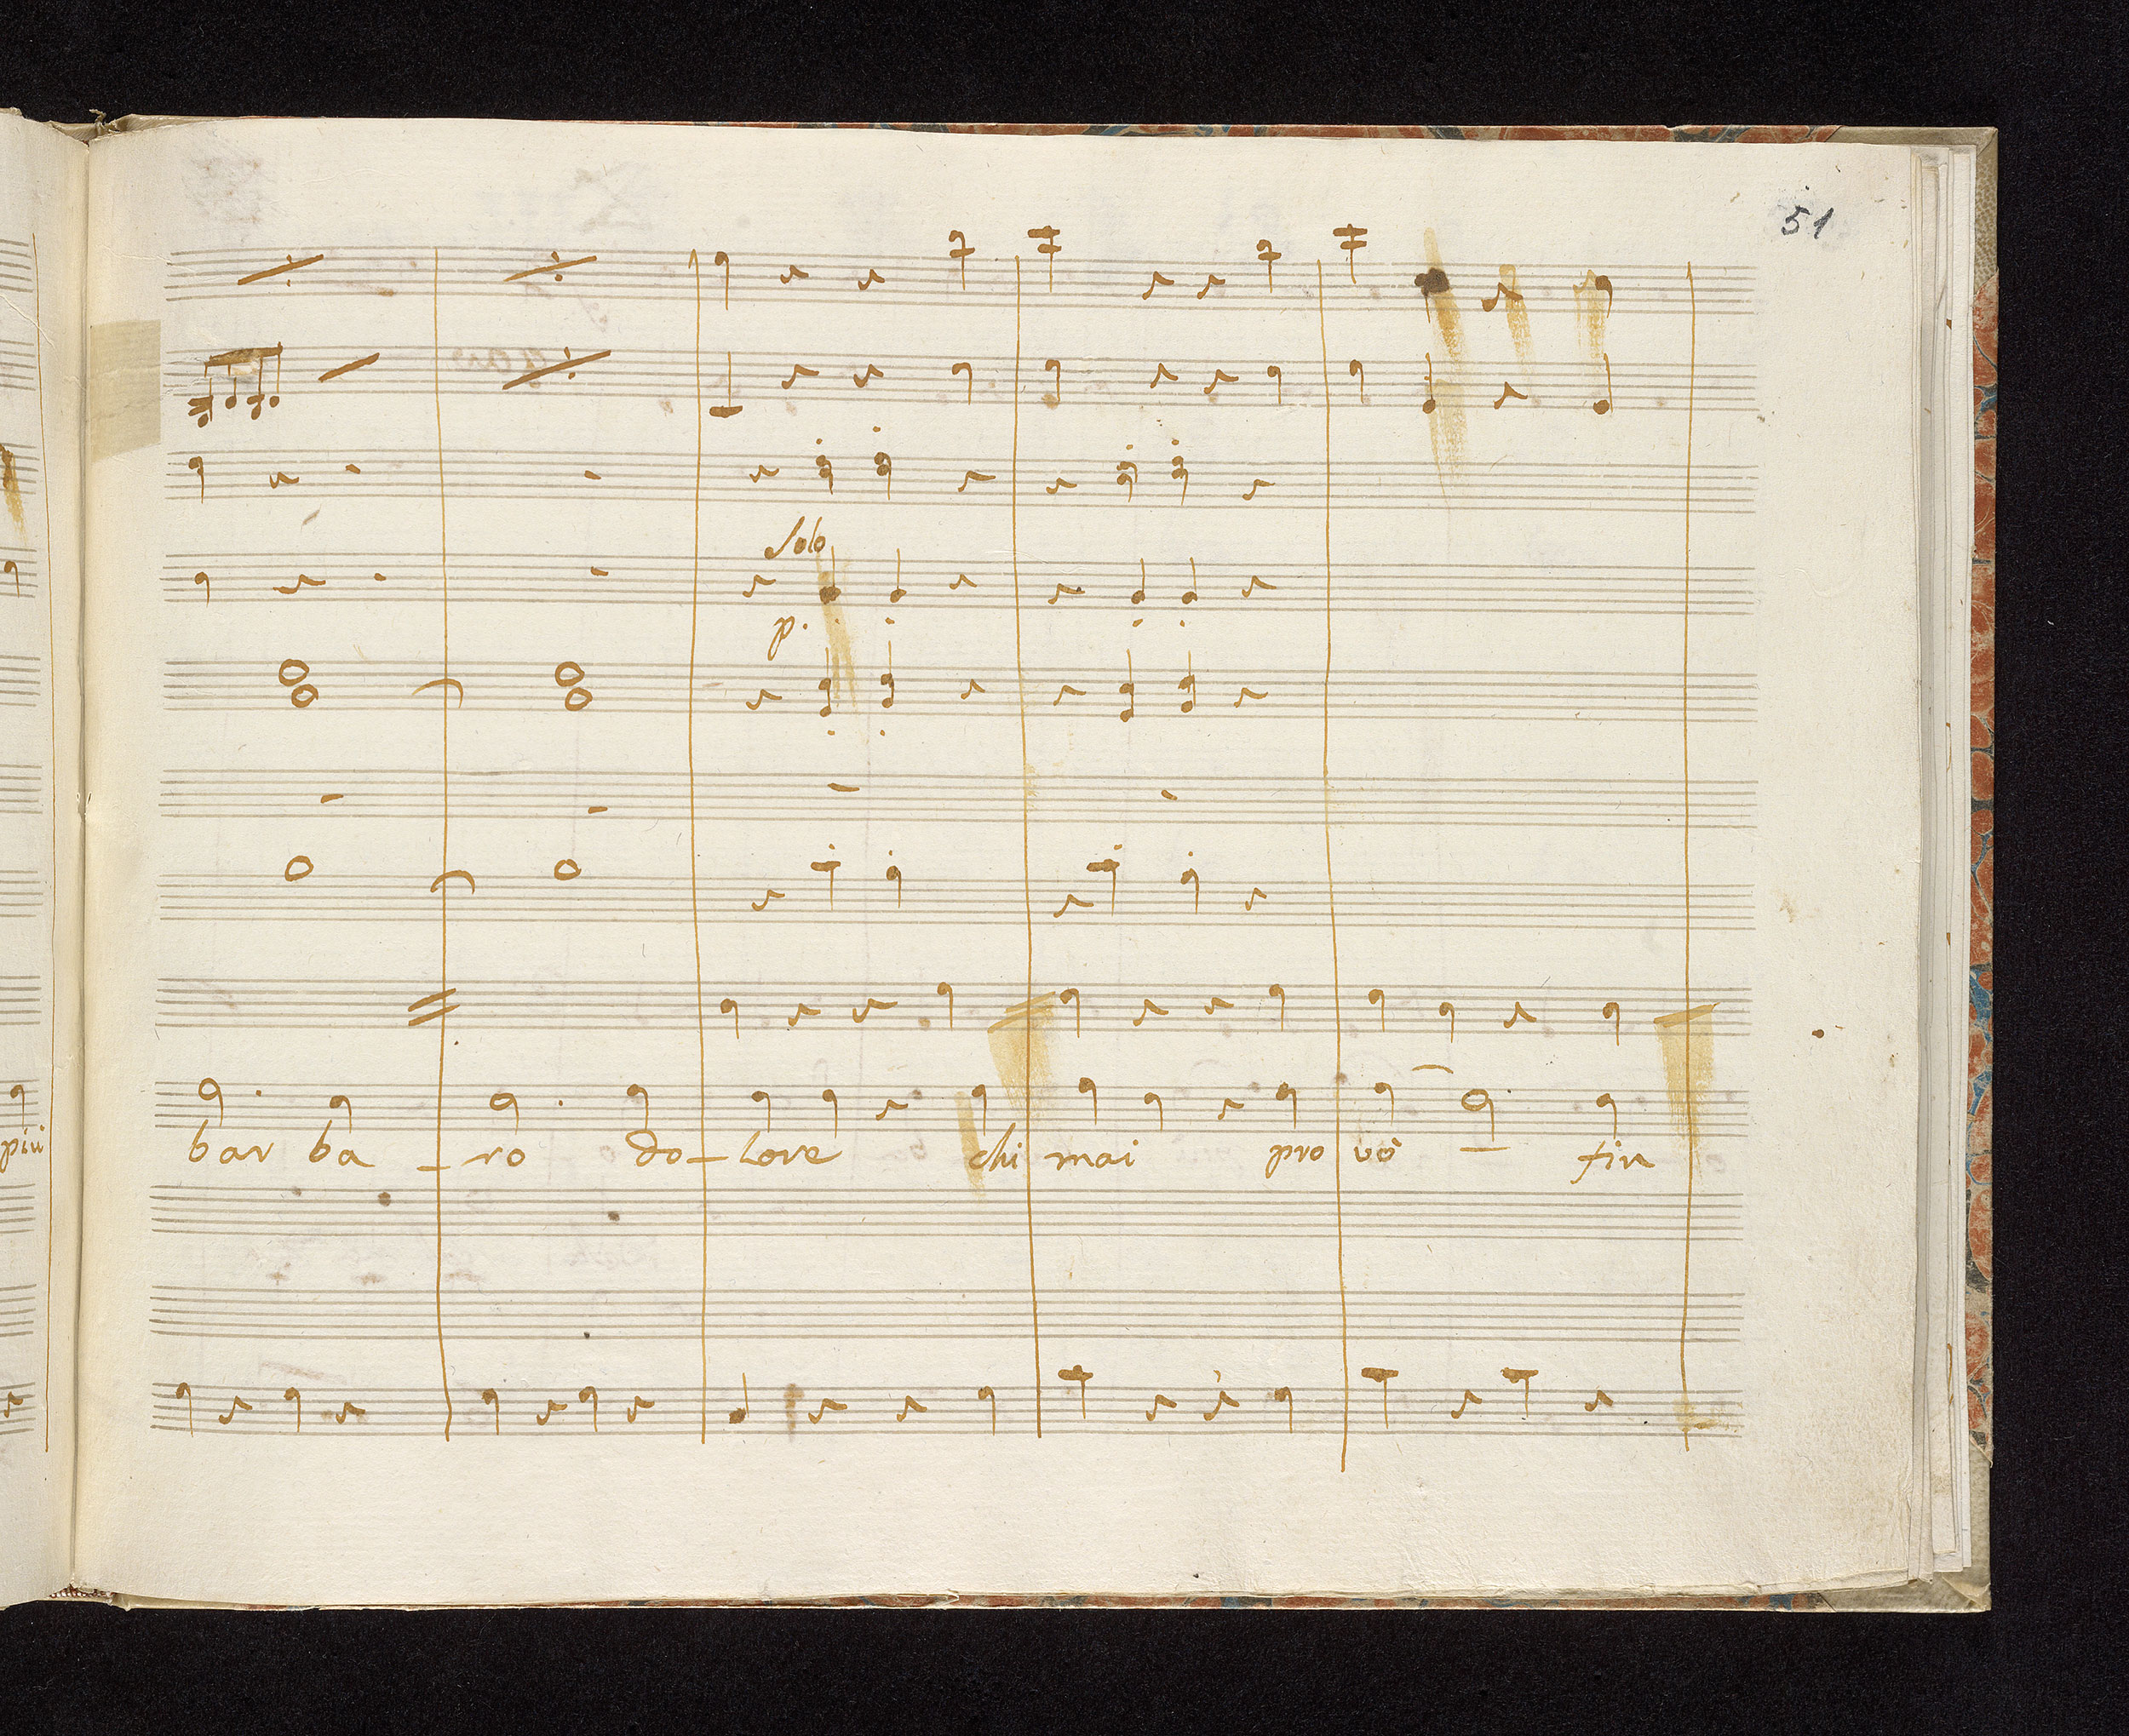 51
Solo
p.
più bar ba - ro do - lore chi mai pro vò - fin